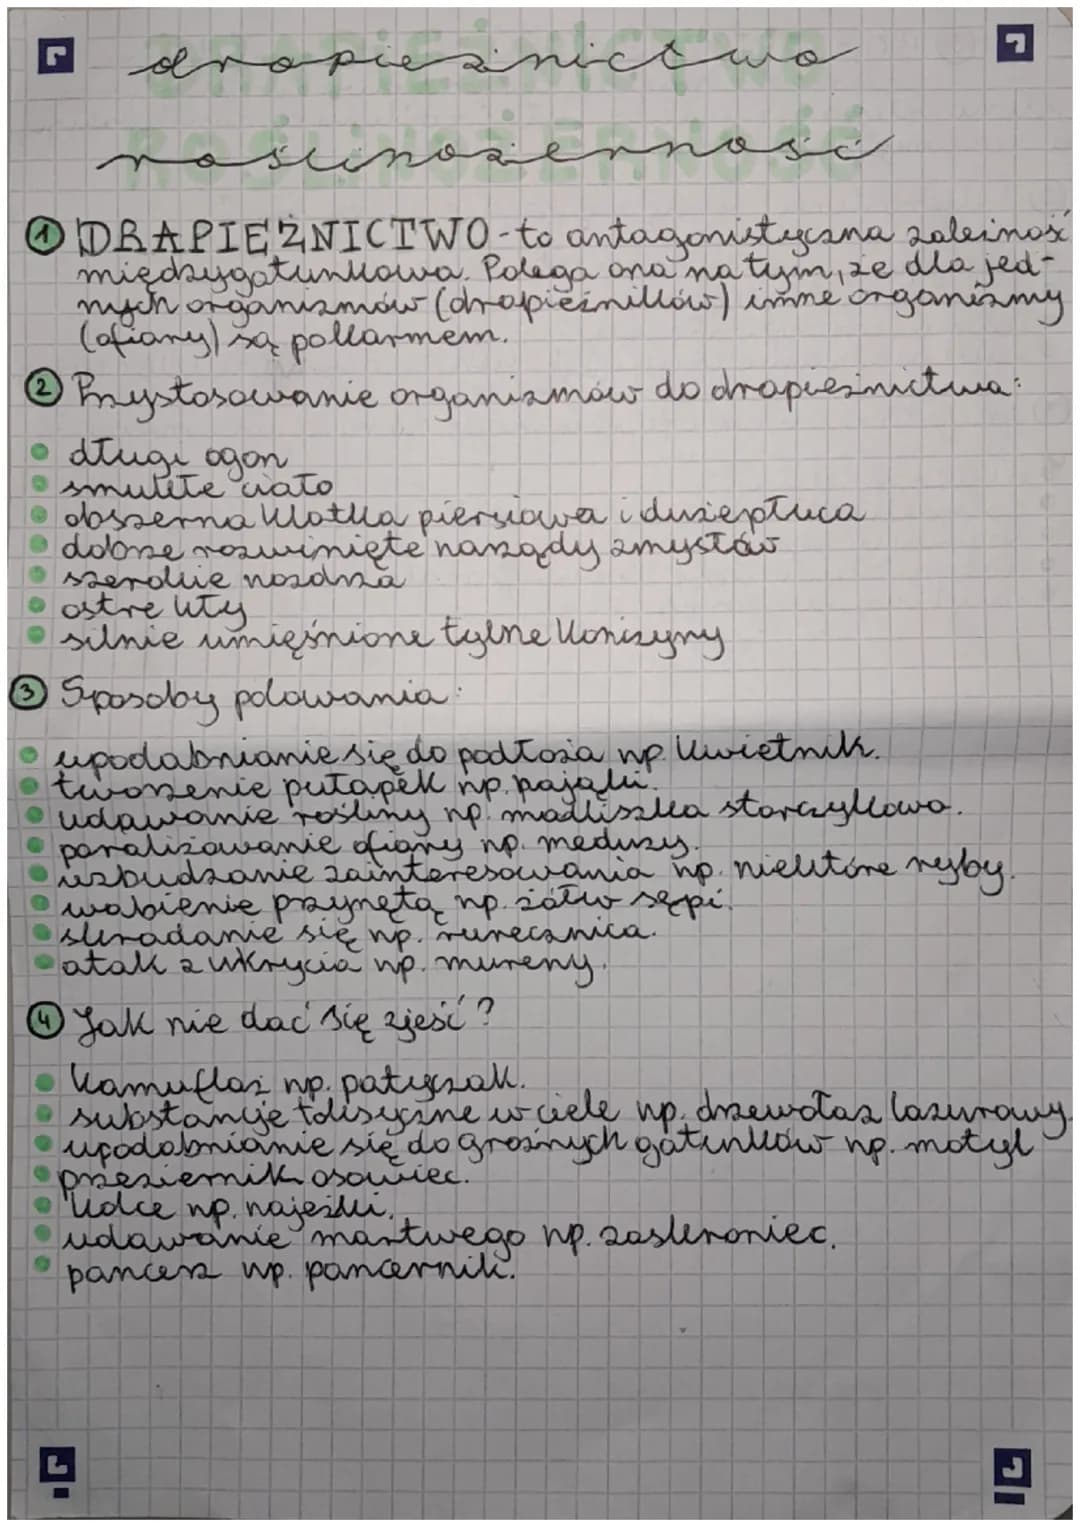 drapieżnictwo
roślinożerność
① DRAPIEŻNICTWO - to antagonistyczna zależność
międzygatunkowa. Polega ona na tym, że dla jed-
nych organizmów (drapieżników) inne organizmy
(ofiary) są pokarmem.
② Przystosowanie organizmów do drapieżnictwa:
• długi ogon
• smukłe ciało
• obszerna klatka piersiowa i duże płuca
• dobrze rozwinięte narządy zmysłów
• szerokie nozdrza
• ostre kły
• silnie umięśnione tylne kończyny
③ Sposoby polowania:
• upodabnianie się do podłoża np. kwietnik.
• tworzenie pułapek np. pająki.
• udawanie rośliny np. modliszka storczykowa.
• paraliżowanie ofiary np. meduzy.
• wzbudzanie zainteresowania np. niektóre ryby.
• wabienie przynętą np. żółw sępi.
• skradanie się np. rurecznica.
• atak z ukrycia np. mureny.
④ Jak nie dać się zjeść?
• kamuflaż np. patyczak.
• substancje toksyczne w ciele np. drzewołaz lazurowy.
• upodobnianie się do groźnych gatunków np. motyl
• przeziernik osowiec.
• kolce np. najeżki.
• udawanie martwego np. zaskroniec.
• pancerz np. pancernik.